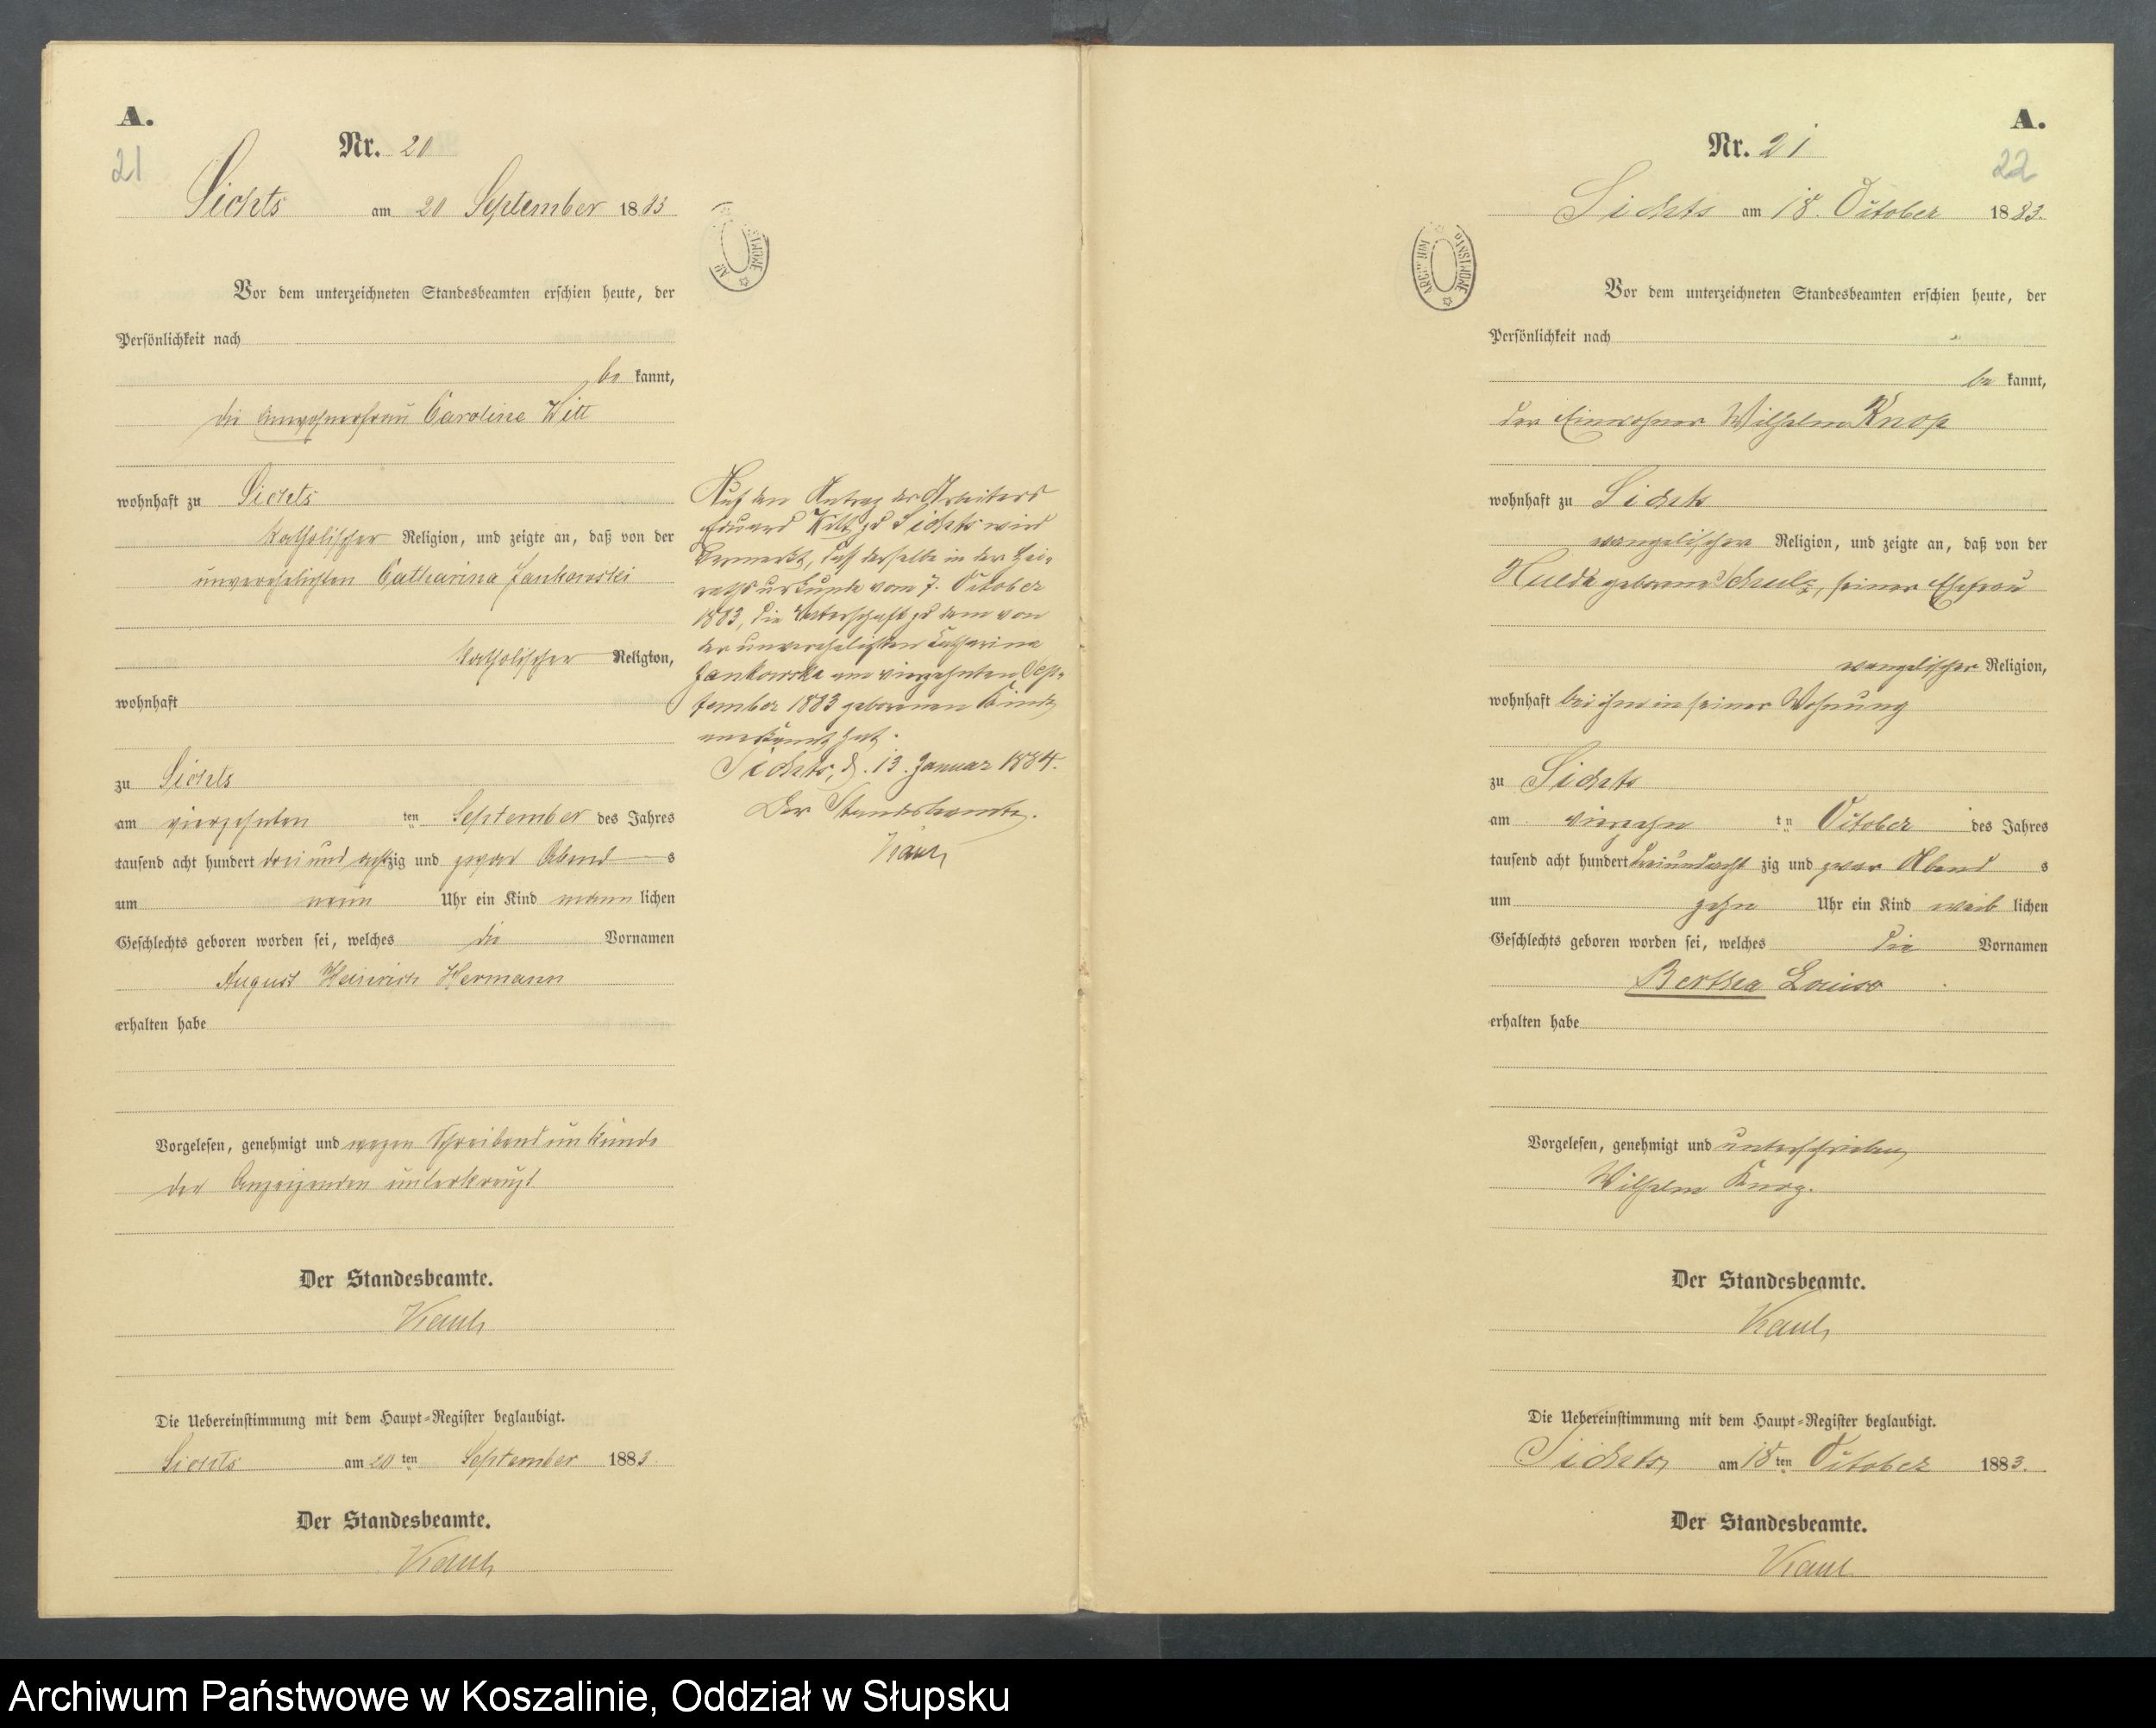 A.
21
Nr. 20
Sichts am 20 September 1883
Vor dem unterzeichneten Standesbeamten erschien heute, der
Persönlichkeit nach
be kannt,
die Einwohnerfrau Caroline Witt
wohnhaft zu Sichts
katholischer Religion, und zeigte an, daß von der
unverehelichten Catharina Jankowski
katholischer Religion,
wohnhaft
zu Sichts
am vierzehnten ten September des Jahres
tausend acht hundert drei und achtzig und zwar Abend s
um neun Uhr ein Kind männ lichen
Geschlechts geboren worden sei, welches die Vornamen
August Heinrich Hermann
erhalten habe
Vorgelesen, genehmigt und wegen Schreibens unkunde
der Anzeigenden unterkreuzt
Der Standesbeamte.
Die Uebereinstimmung mit dem Haupt-Register beglaubigt.
Sichts am 20 ten September 1883
Der Standesbeamte.
Auf den Antrag des Arbeiters
Eduard Witt zu Sichts wird
vermerkt, daß derselbe in der Hei-
rathsurkunde vom 7. October
1883, die Vaterschaft zu dem von
der unverehelichten Catharina
Jankowska am vierzehnten Sep-
tember 1883 geborenen Kinde
anerkannt hat.
Sichts, d. 13. Januar 1884.
Der Standesbeamte.
A.
22
Nr. 21
Sichts am 18. October 1883.
ARCHIWUM PAŃSTWOWE
Vor dem unterzeichneten Standesbeamten erschien heute, der
Persönlichkeit nach
be kannt,
der Einwohner Wilhelm Knop
wohnhaft zu Sichts
evangelischer Religion, und zeigte an, daß von der
Hulda geborene Schulz, seiner Ehefrau
evangelischer Religion,
wohnhaft bei ihm in seiner Wohnung
zu Sichts
am vierzehn tn October des Jahres
tausend acht hundert dreiundacht zig und zwar Abend s
um zehn Uhr ein Kind weib lichen
Geschlechts geboren worden sei, welches die Vornamen
Bertha Louise
erhalten habe
Vorgelesen, genehmigt und unterschrieben
Wilhelm Knop.
Der Standesbeamte.
Die Uebereinstimmung mit dem Haupt-Register beglaubigt.
Sichts, am 18 ten October 1883.
Der Standesbeamte.
Archiwum Państwowe w Koszalinie, Oddział w Słupsku